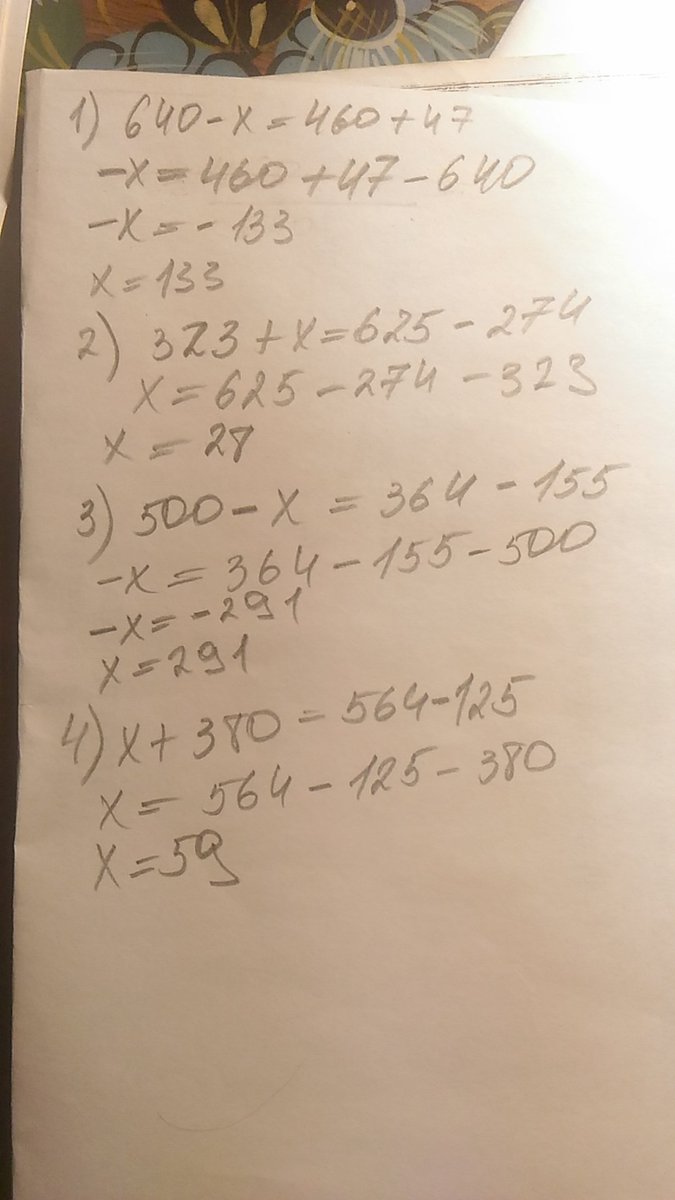 1) 640 - x = 460 + 47
-x = 460 + 47 - 640
-x = - 133
x = 133
2) 323 + x = 625 - 274
x = 625 - 274 - 323
x = 28
3) 500 - x = 364 - 155
-x = 364 - 155 - 500
-x = -291
x = 291
4) x + 380 = 564 - 125
x = 564 - 125 - 380
x = 59